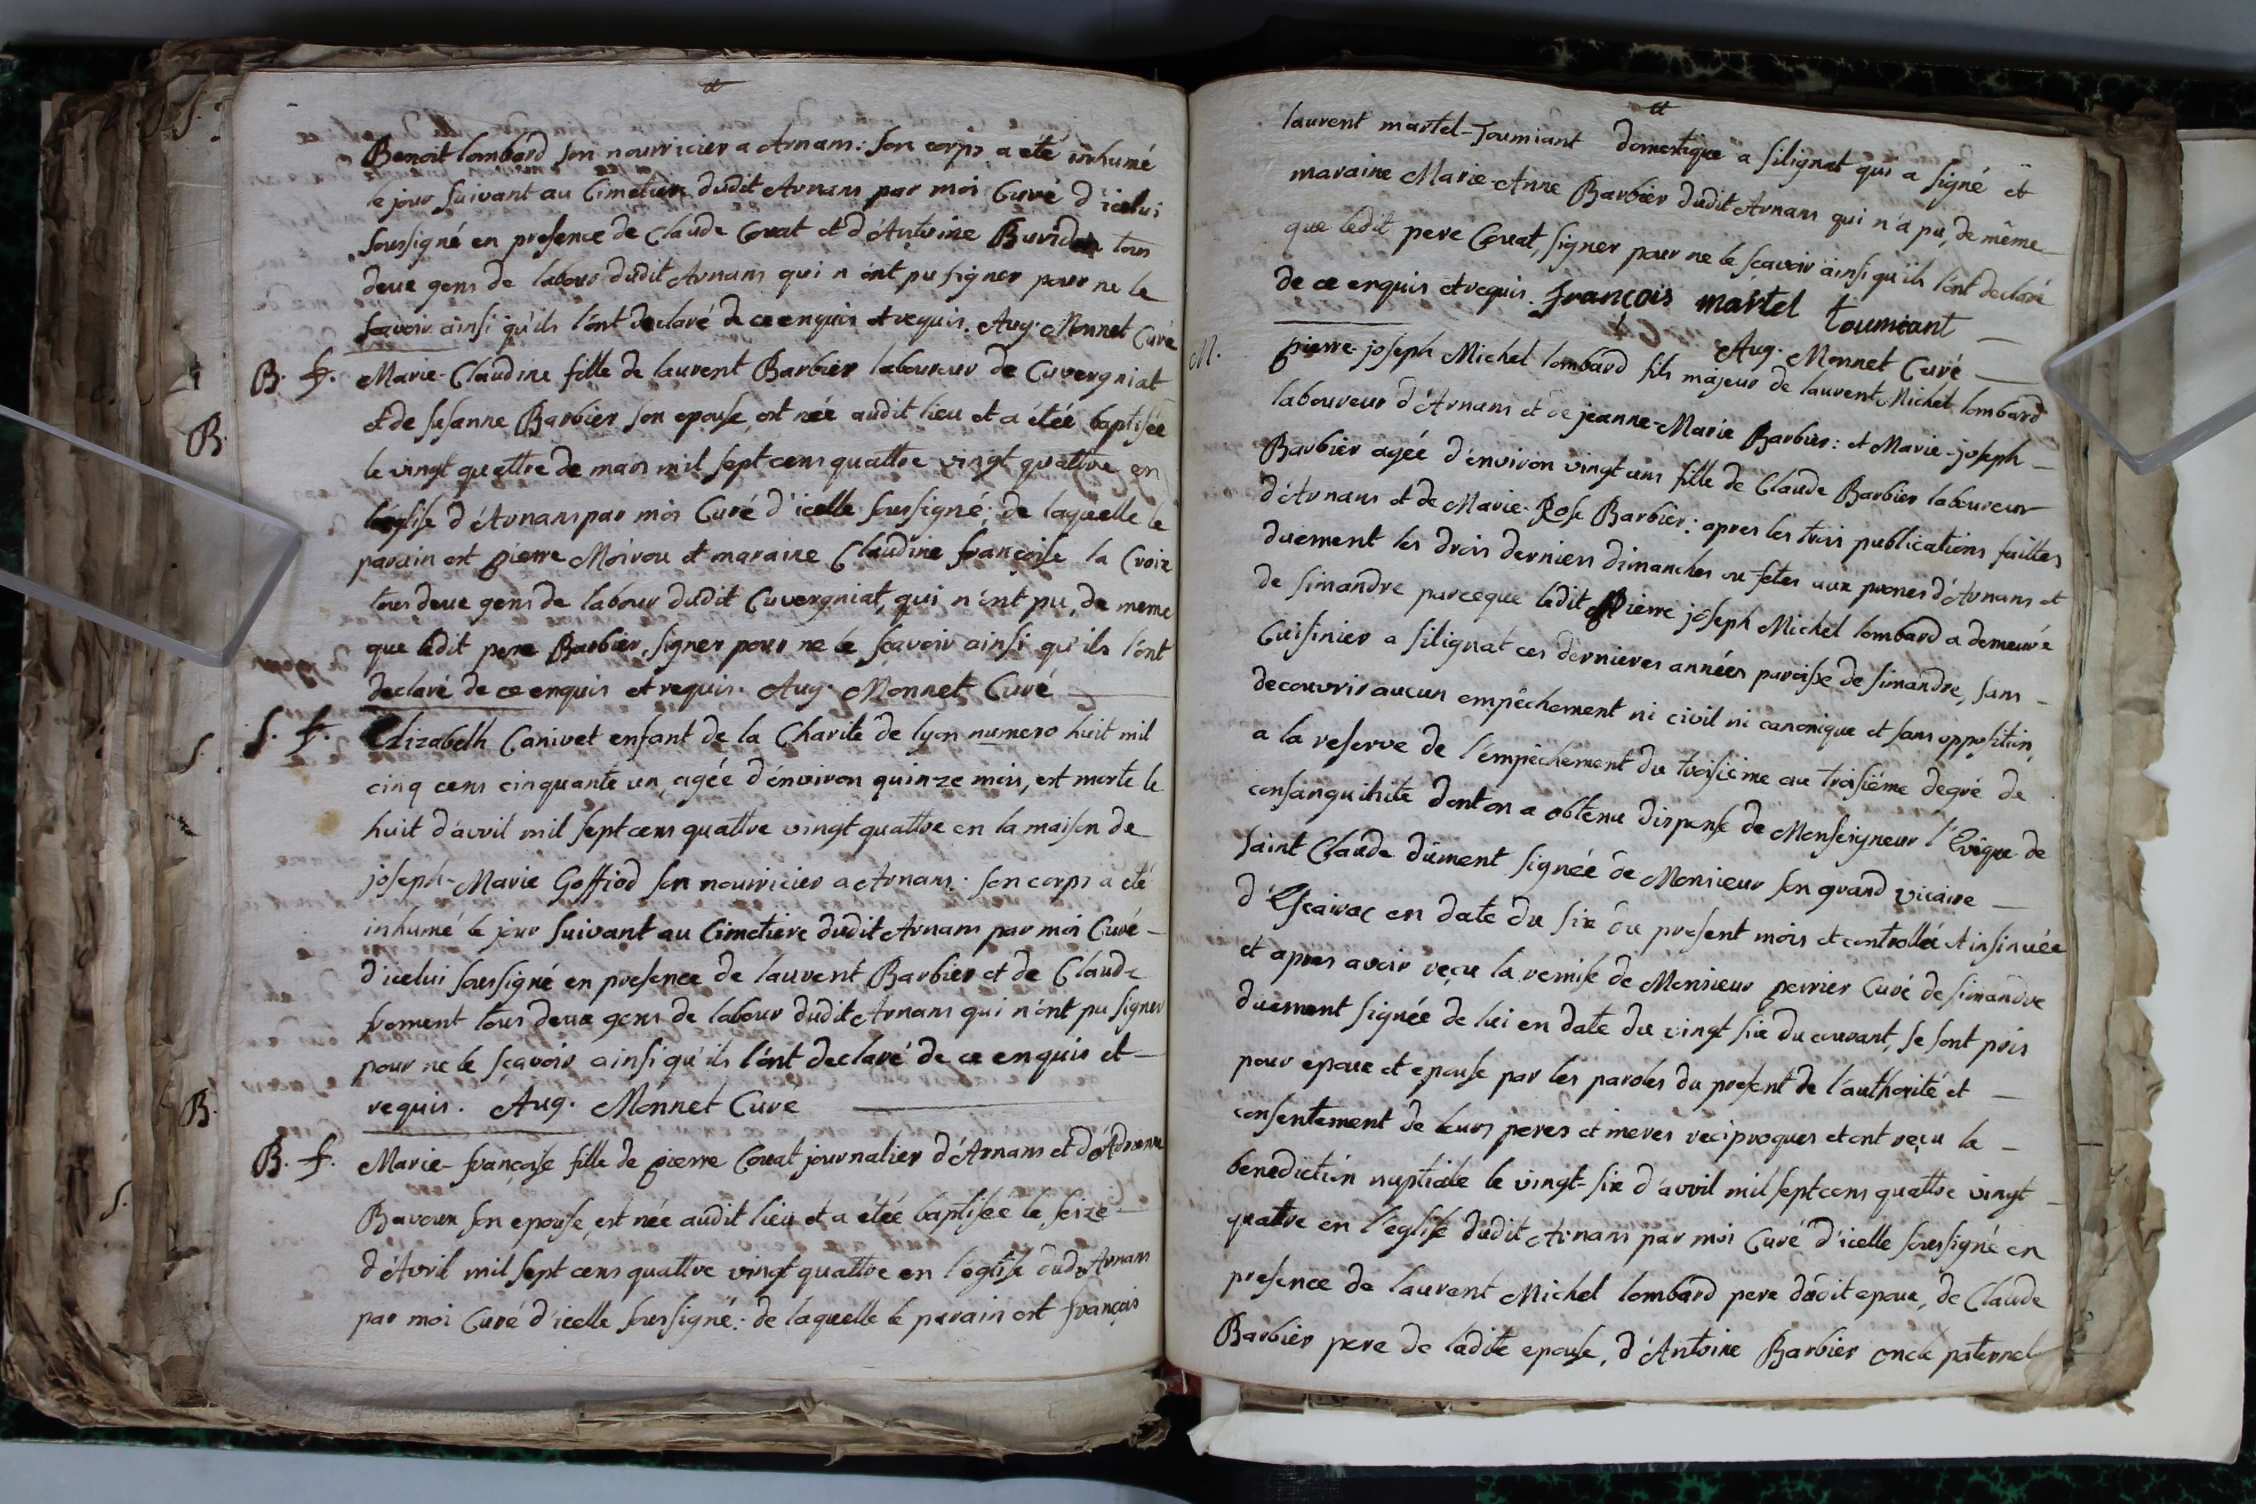 Benoit lombard son nourricier a Arnans: son corps a été inhumé
le jour suivant au Cimetiere dudit Arnans par moi Curé d'icelui
soussigné en presence de Claude Couat et d'Antoine tous
deux gens de labour dudit Arnans qui n'ont pu signer pour ne le
sçavoir ainsi qu'ils l'ont declaré de ce enquis et requis. Aug. Monnet Curé
B. f. Marie-Claudine fille de laurent Barbier laboureur de Cuvergniat
et de susanne Barbier son epouse, est née audit lieu et a étée baptisée
B.
le vingt quattre de mars mil sept cens quattre vingt quattre en
l'eglise d'Arnans par moi Curé d'icelle soussigné; de laquelle le
parain est pierre Moirou et maraine Claudine françoise la Croix
tous deux gens de labour dudit Cuvergniat, qui n'ont pu, de meme
que ledit pere Barbier, signer pour ne le sçavoir ainsi qu'ils l'ont
declaré de ce enquis et requis. Aug. Monnet Curé
S. f. Elizabeth Canivet enfant de la Charité de lyon numero huit mil
S.
cinq cens cinquante un, agée d'environ quinze mois, est morte le
huit d'avril mil sept cens quattre vingt quattre en la maison de
joseph-Marie Goffiod son nourricier a Arnans. son corps a été
inhumé le jour suivant au Cimetiere dudit Arnans par moi Curé
d'icelui soussigné en presence de laurent Barbier et de Claude
froment tous deux gens de labour dudit Arnans qui n'ont pu signer
pour ne le sçavoir ainsi qu'ils l'ont declaré de ce enquis et
requis. Aug. Monnet Curé
B.
B. f. Marie-françoise fille de pierre Couat journalier d'Arnans et d'Adrienne
S.
Bavoux son epouse, est née audit lieu et a étée baptisée le seize
d'Avril mil sept cens quattre vingt quattre en l'eglise dudit Arnans
par moi Curé d'icelle soussigné: de laquelle le parain est françois
laurent martel-Toumiant domestique a silignat qui a signé et
maraine Marie-Anne Barbier dudit Arnans qui n'a pu, de même
que ledit pere Couat, signer pour ne le sçavoir ainsi qu'ils l'ont declaré
de ce enquis et requis. François martel toumiant
Aug. Monnet Curé
M. pierre-joseph Michel lombard fils majeur de laurent Michel lombard
laboureur d'Arnans et de jeanne-Marie Barbier: et Marie-joseph
Barbier agée d'environ vingt ans fille de Claude Barbier laboureur
d'Arnans et de Marie-Rose Barbier: apres les trois publications faittes
duement les trois derniers dimanches ou fetes aux prones d'Arnans et
de simandre parceque ledit Pierre joseph Michel lombard a demeuré
Cuisinier a silignat ces dernieres années paroisse de simandre, sans
decouvrir aucun empêchement ni civil ni canonique et sans opposition,
a la reserve de l'empêchement du troisième au troisième degré de
consanguinité dont on a obtenu dispense de Monseigneur l'Evêque de
saint Claude dûment signée de Monsieur son grand vicaire
d'Escairac en date du six du present mois et controllée et insinuée
et apres avoir reçu la remise de Monsieur perrier Curé de simandre
duement signée de lui en date du vingt six du courant, se sont pris
pour epoux et epouse par les paroles du present de l'authorité et
consentement de leurs peres et meres reciproques et ont reçu la
benediction nuptiale le vingt-six d'avril mil sept cens quattre vingt
quatre en l'eglise dudit Arnans par moi Curé d'icelle soussigné en
presence de laurent Michel lombard pere dudit epoux, de Claude
Barbier pere de ladite epouse, d'Antoine Barbier oncle paternel